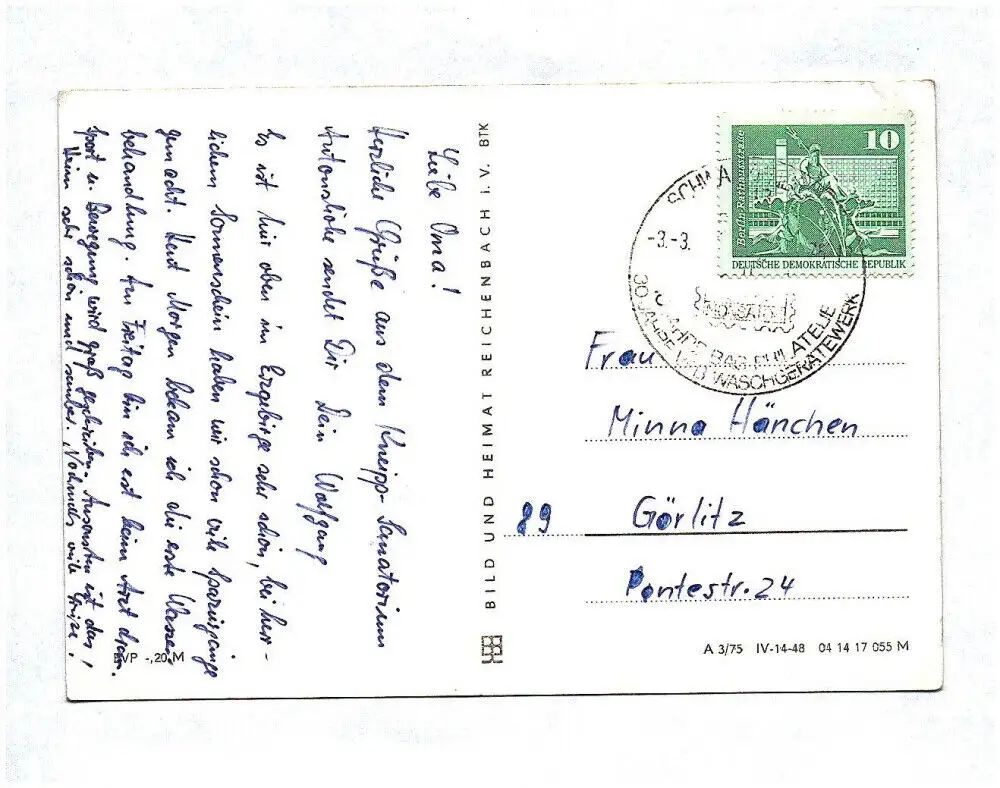 Liebe Oma!
Herzliche Grüße aus dem Kneipp-Sanatorium
sendet Dir Dein Wolfgang
Es ist hier oben im Erzgebirge sehr schön, bei herr-
lichem Sonnenschein haben wir schon viele Spaziergänge
gemacht. Heut Morgen bekam ich die erste Wasser-
behandlung. Am Freitag bin ich erst beim Arzt dran.
Sport u. Bewegung wird groß geschrieben. Ansonsten ist das
Heim sehr schön und sauber. Nochmals viele Grüße!
EVP -,20 M
BILD UND HEIMAT REICHENBACH I. V. BTK
10
DEUTSCHE DEMOKRATISCHE REPUBLIK
-3.-3.
PHILATELIE
30 JAHRE WASCHGERÄTEWERK
Frau
Minna Hänchen
89 Görlitz
Pontestr. 24
A 3/75 IV-14-48 04 14 17 055 M